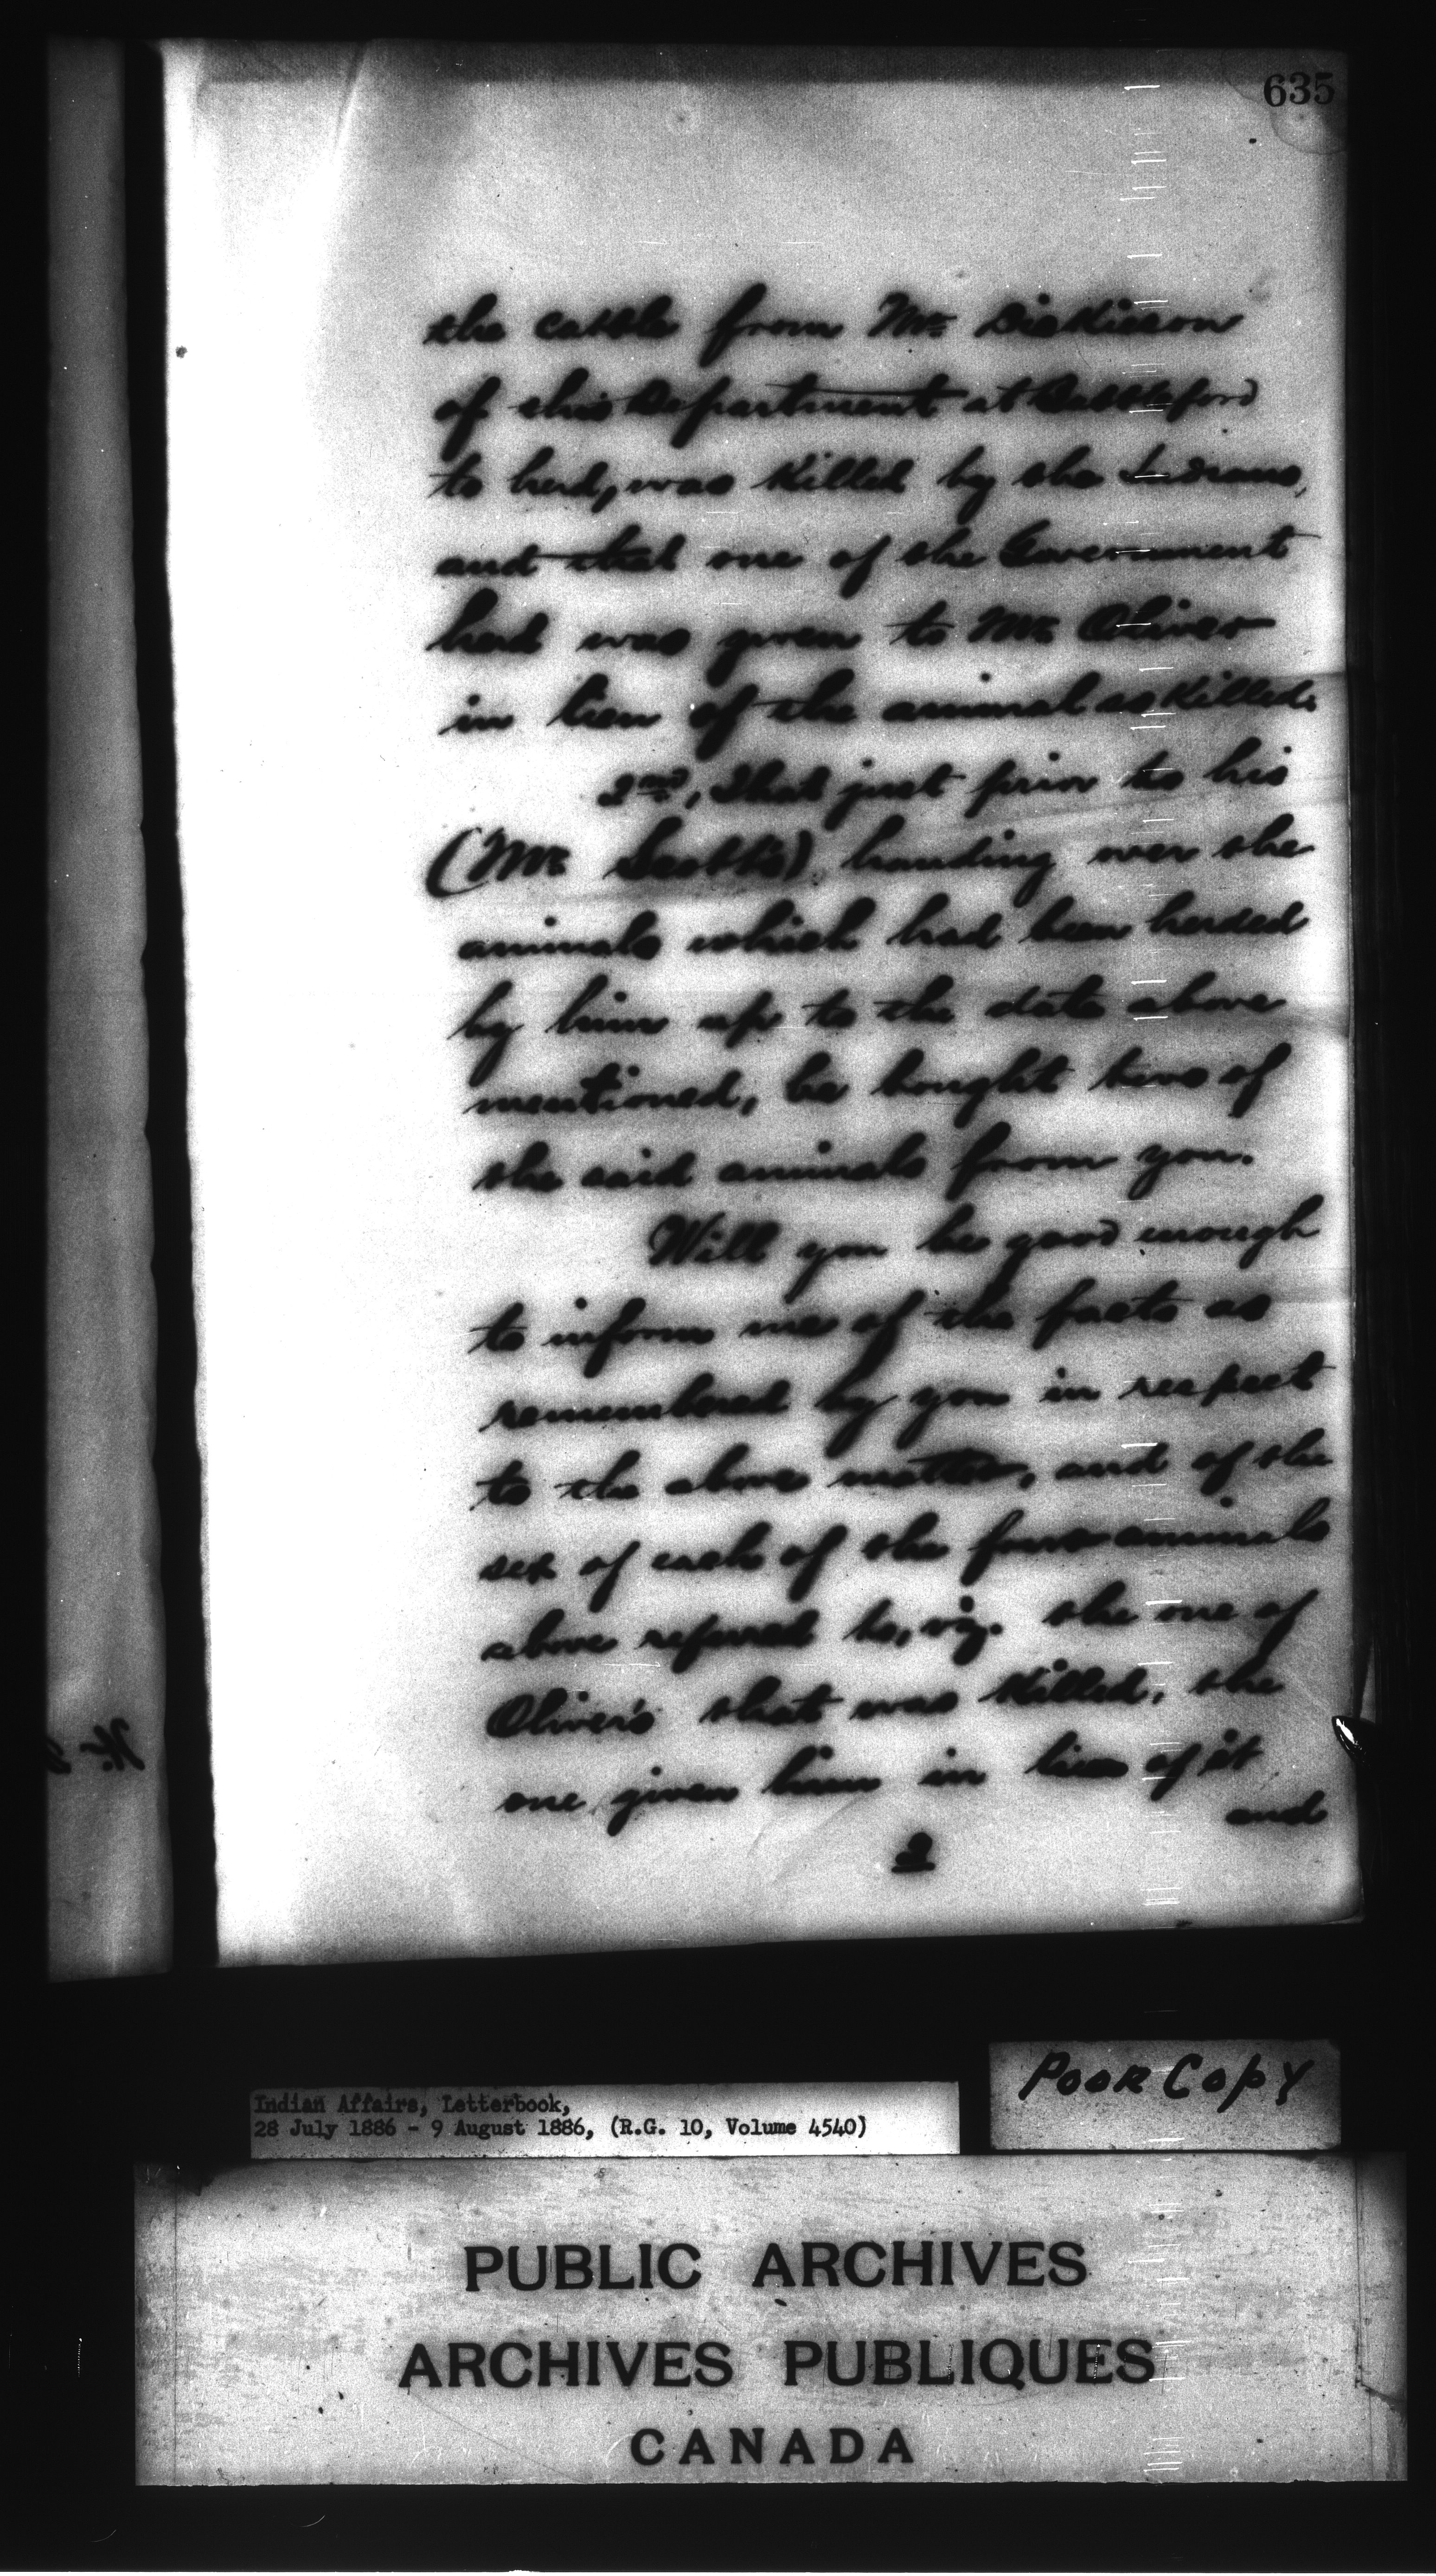 635
the cattle from Mr. Dickieson
of this Department at Battleford
to herd, was killed by the Indians,
and that one of the Government
herd was given to Mr. Oliver
in lieu of the animal so killed.
2nd, That just prior to his
(Mr. Scott's) handing over the
animals which had been herded
by him up to the date above
mentioned, he bought two of
the said animals from you.
Will you be good enough
to inform me of the facts as
remembered by you in respect
to the above matter, and of the
sex of each of the four animals
above referred to, viz. the one of
Oliver's that was killed, the
one given him in lieu of it
and
Poor Copy
Indian Affairs, Letterbook,
28 July 1886 - 9 August 1886, (R.G. 10, Volume 4540)
PUBLIC ARCHIVES
ARCHIVES PUBLIQUES
CANADA